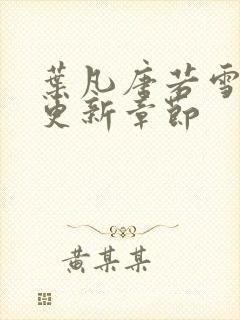 葉凡唐若雪
更新章節
黃某某